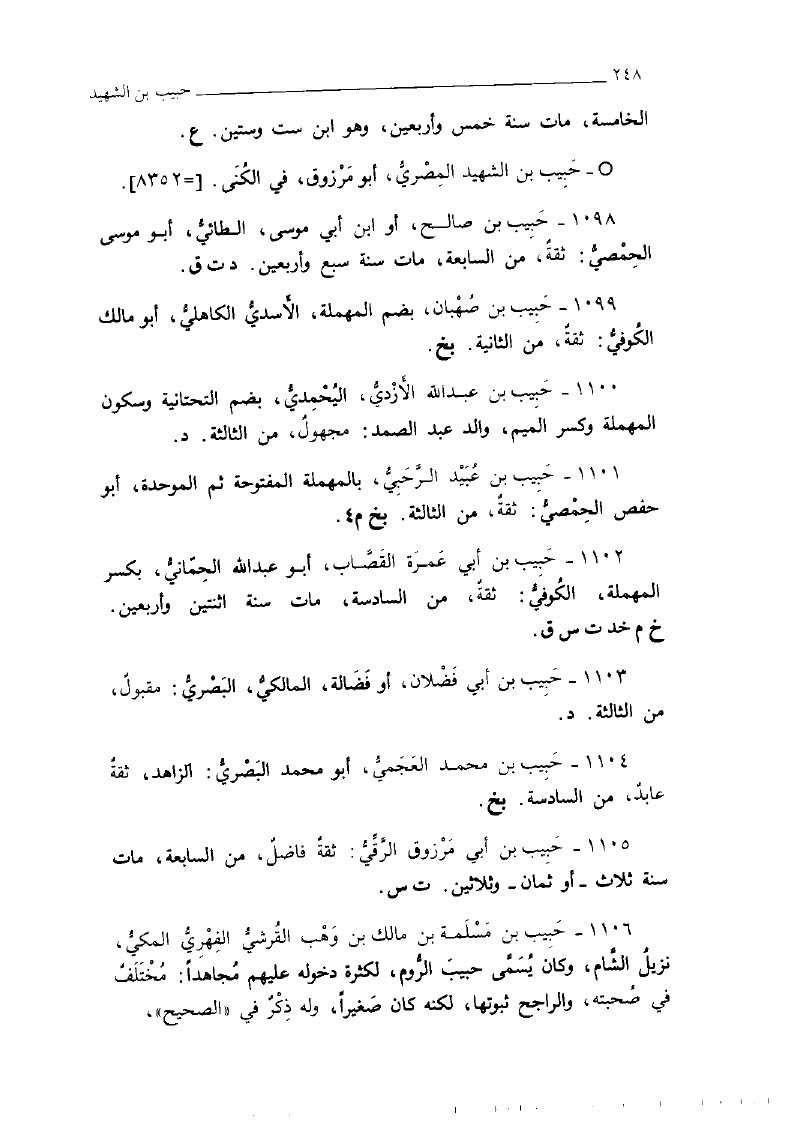 ٢٤٨ ــــــــ حبيب بن الشهيد
الخامسة، مات سنة خمس وأربعين، وهو ابن ست وستين. ع.
O ـ حَبِيب بن الشهيد المِصْريُّ، أبو مَرْزوق، في الكُنَى. [=٨٣٥٢].
١٠٩٨ ـ حَبِيب بن صالـح، أو ابن أبي موسى، الـطائيُّ، أبـو موسى
الحِمْصيُّ: ثقةٌ، من السابعة، مات سنة سبع وأربعين. د ت ق.
١٠٩٩ ـ حَبِيب بن صُهْبان، بضم المهملة، الأَسديُّ الكاهليُّ، أبو مالك
الكُوفيُّ: ثقةٌ، من الثانية. بخ.
١١٠٠ ـ حَبِيب بن عبـدالله الأَزْديُّ، اليُحْمِديُّ، بضم التحتانية وسكون
المهملة وكسر الميم، والد عبد الصمد: مجهولٌ، من الثالثة. د.
١١٠١ ـ حَبِيب بن عُبَيْد الـرَّحَبِيُّ، بالمهملة المفتوحة ثم الموحدة، أبو
حفص الحِمْصيُّ: ثقةٌ، من الثالثة. بخ م٤.
١١٠٢ ـ حَبِيب بن أبي عَمـرَة القَصَّـاب، أبـو عبدالله الحِمَّانيُّ، بكسر
المهملة، الكُوفيُّ: ثقةٌ، من السادسة، مات سنة اثنتين وأربعين.
خ م خد ت س ق.
١١٠٣ ـ حَبِيب بن أبي فَضْلان، أو فَضَالة، المالكيُّ، البَصْريُّ: مقبولٌ،
من الثالثة. د.
١١٠٤ ـ حَبِيب بن محمـد العَجَميُّ، أبو محمد البَصْريُّ: الزاهد، ثقةٌ
عابدٌ، من السادسة. بخ.
١١٠٥ ـ حَبِيب بن أبي مَرْزوق الرَّقِّيُّ: ثقةٌ فاضلٌ، من السابعة، مات
سنة ثلاث ـ أو ثمان ـ وثلاثين. ت س.
١١٠٦ ـ حَبِيب بن مَسْلَمـة بن مالك بن وَهْب القُرشيُّ الفِهْريُّ المكيُّ،
نزيلُ الشَّام، وكان يُسَمَّى حبيبَ الرُّوم، لكثرة دخوله عليهم مُجاهداً: مُخْتَلَفٌ
في صُحبته، والراجح ثبوتها، لكنه كان صَغيراً، وله ذِكْرٌ في «الصحيح»،